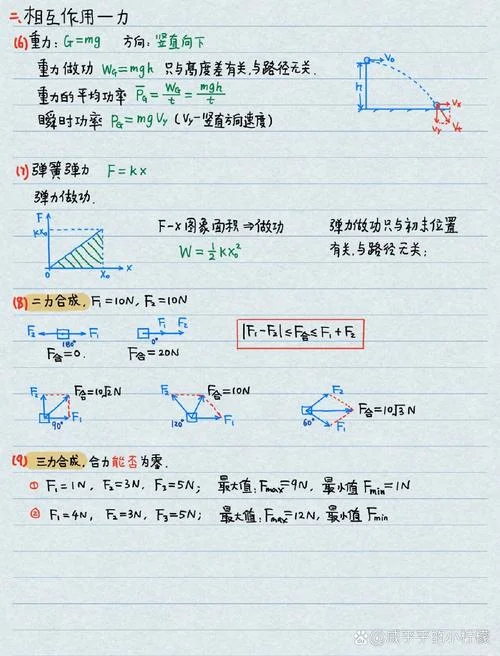 二、相互作用一力
(6) 重力: G=mg 方向: 竖直向下
重力做功 W_G=mgh 只与高度差有关,与路径无关.
重力的平均功率 P̄_G=W_G/t=mgh/t
瞬时功率 P_G=mgV_y (V_y-竖直方向速度)
V₀
h
V_x
V_y V_t
(7) 弹簧弹力 F=kx
弹力做功.
F
kx₀
0 x₀ x
F-x图象面积⇒做功
W=½kx₀²
弹力做功只与初末位置
有关,与路径无关;
(8) 二力合成, F₁=10N, F₂=10N
F₂ 180° F₁
F合=0.
0° F₁ F₂
F合=20N
|F₁-F₂|≤F合≤F₁+F₂
F₂ F合=10√2N
90° F₁
F₂ F合=10N
120° F₁
F₂
60° F合=10√3N
F₁
(9) 三力合成, 合力能否为零.
① F₁=1N, F₂=3N, F₃=5N; 最大值: Fmax=9N, 最小值 Fmin=1N
② F₁=4N, F₂=3N, F₃=5N; 最大值: Fmax=12N, 最小值 Fmin